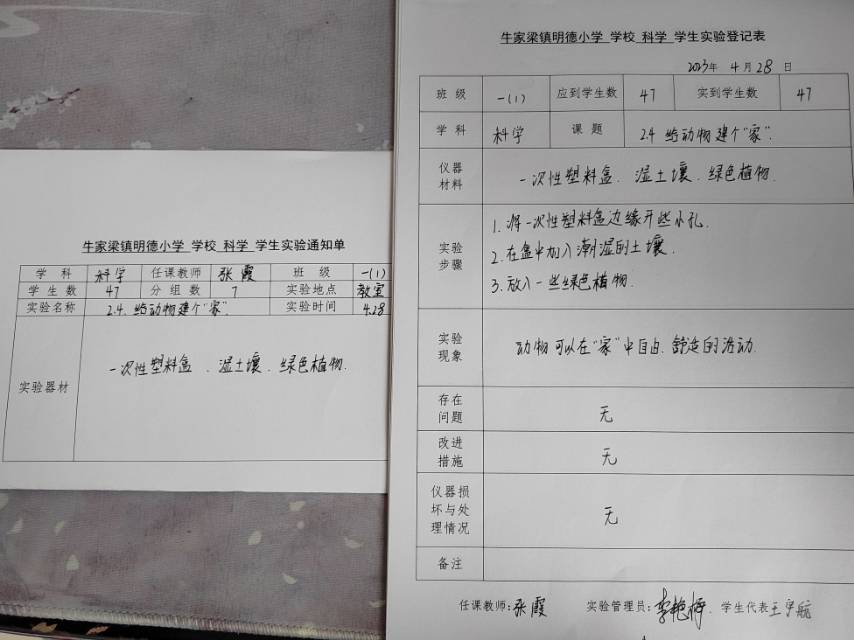 牛家梁镇明德小学 学校 科学 学生实验通知单
学科 科学 任课教师 张霞 班级 一(1)
学生数 47 分组数 7 实验地点 教室
实验名称 2.4.给动物建个"家". 实验时间 4.28
实验器材 一次性塑料盒、湿土壤、绿色植物.
牛家梁镇明德小学 学校 科学 学生实验登记表
2023年 4月 28日
班级 一(1) 应到学生数 47 实到学生数 47
学科 科学 课题 2.4 给动物建个"家".
仪器材料 一次性塑料盒、湿土壤、绿色植物.
实验步骤
1.将一次性塑料盒边缘开些小孔.
2.在盒中加入潮湿的土壤.
3.放入一些绿色植物.
实验现象 动物可以在"家"中自由、舒适的活动.
存在问题 无
改进措施 无
仪器损坏与处理情况 无
备注
任课教师:张霞 实验管理员:李艳梅 学生代表 王宇航